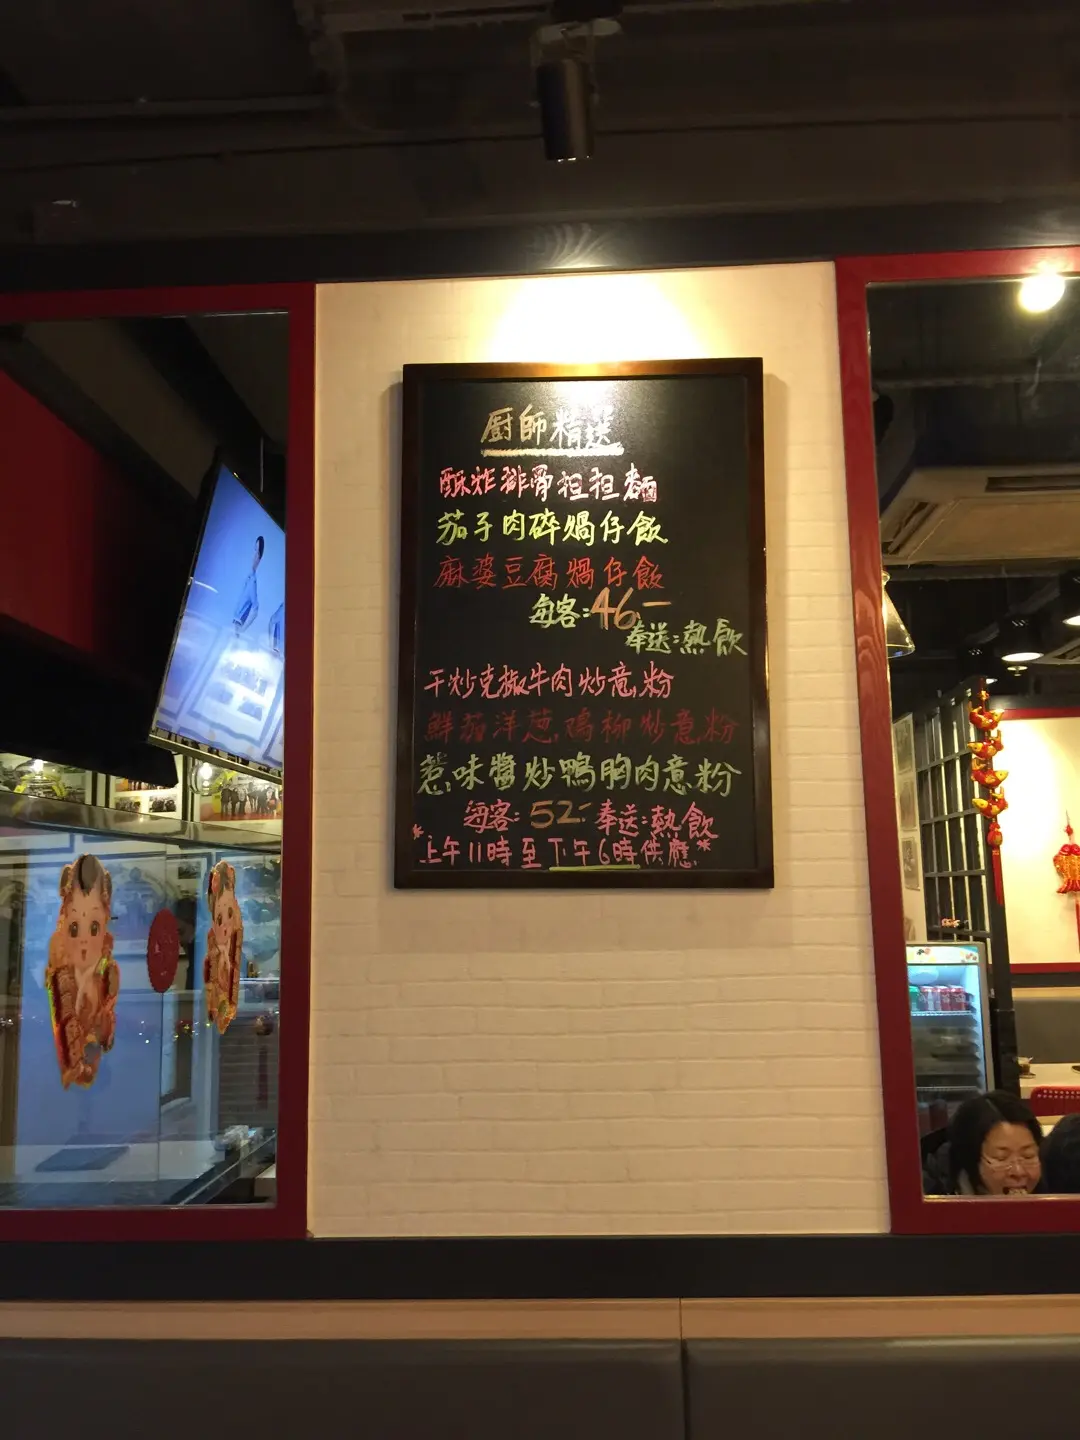 廚師精选
酥炸排骨担担麵
茄子肉碎煱仔飯
麻婆豆腐煱仔飯
每客:46.-
奉送:熱飲
干炒克椒牛肉炒意粉
鮮茄洋葱鸡柳炒意粉
惹味醬炒鴨胸肉意粉
每客:52.- 奉送:熱飲
*上午11時至下午6時供應*